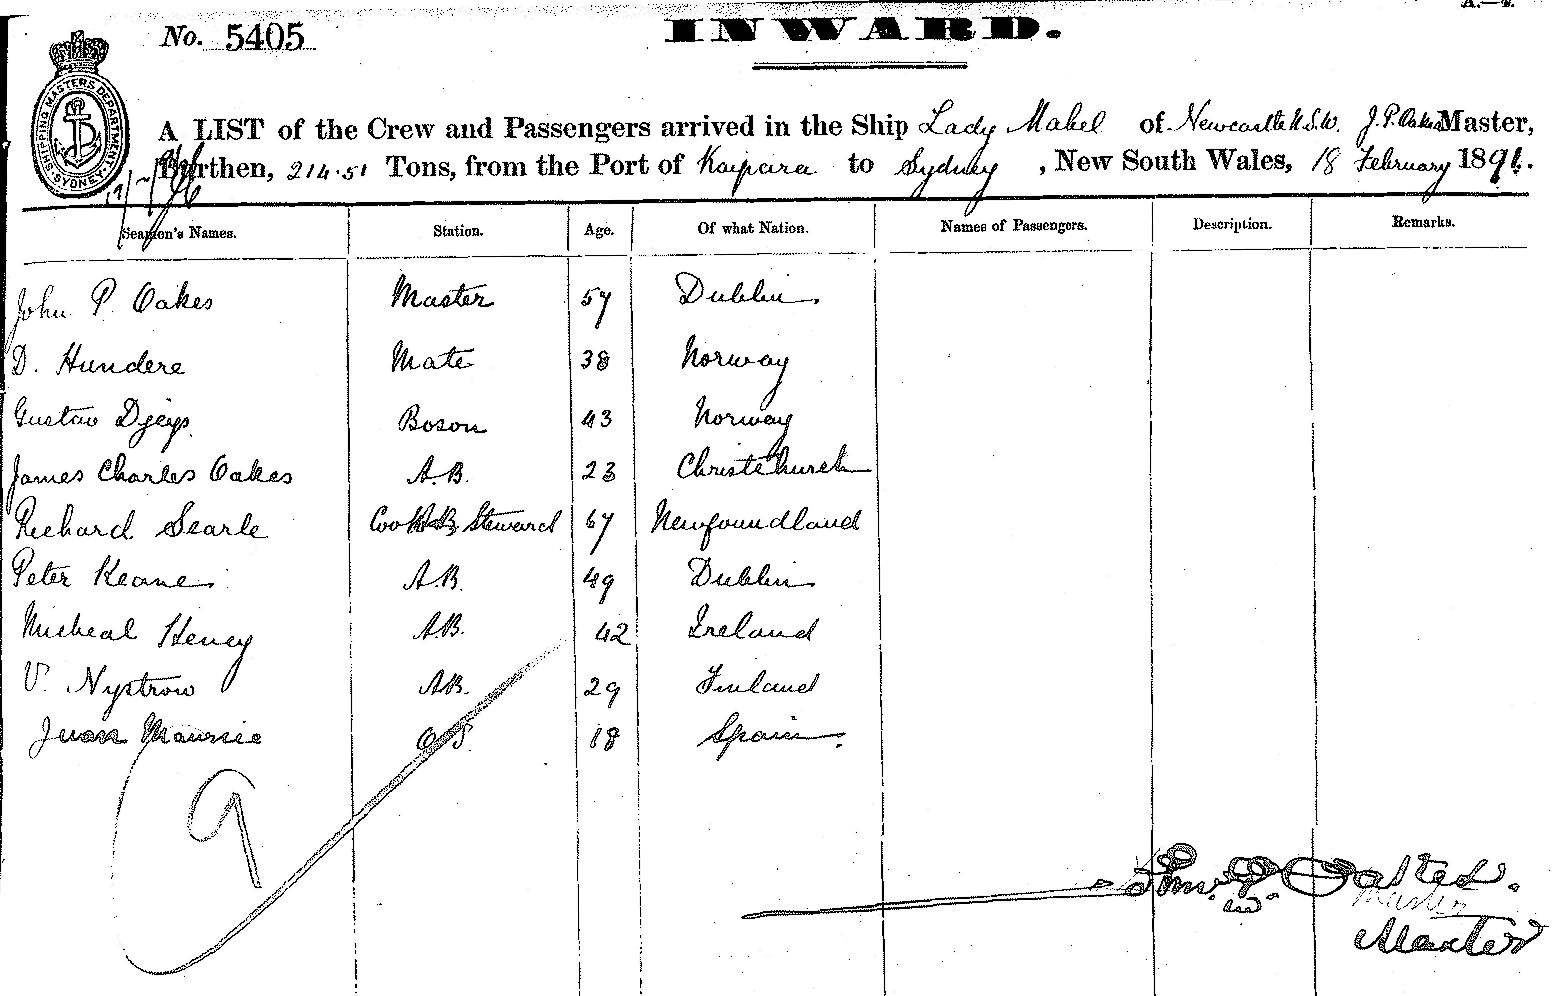 A.—4.
No. 5405
INWARD.
SHIPPING MASTERS DEPARTMENT SYDNEY
A LIST of the Crew and Passengers arrived in the Ship Lady Mabel of Newcastle N.S.W. J. P. Oakes Master,
Burthen, 214.51 Tons, from the Port of Kaipara to Sydney, New South Wales, 18 February 1896.
Seamen's Names. Station. Age. Of what Nation. Names of Passengers. Description. Remarks.
John P. Oakes Master 57 Dublin.
D. Hundere Mate 38 Norway
Gustav Boson 43 Norway
James Charles Oakes A.B. 23 Christchurch
Richard Searle Cook & Steward 67 Newfoundland
Peter Keane A.B. 49 Dublin
Micheal Heney A.B. 42 Ireland
V. Nystrow A.B. 29 Finland
Juan O.S. 18 Spain.
9
Oakes.
Master
Master